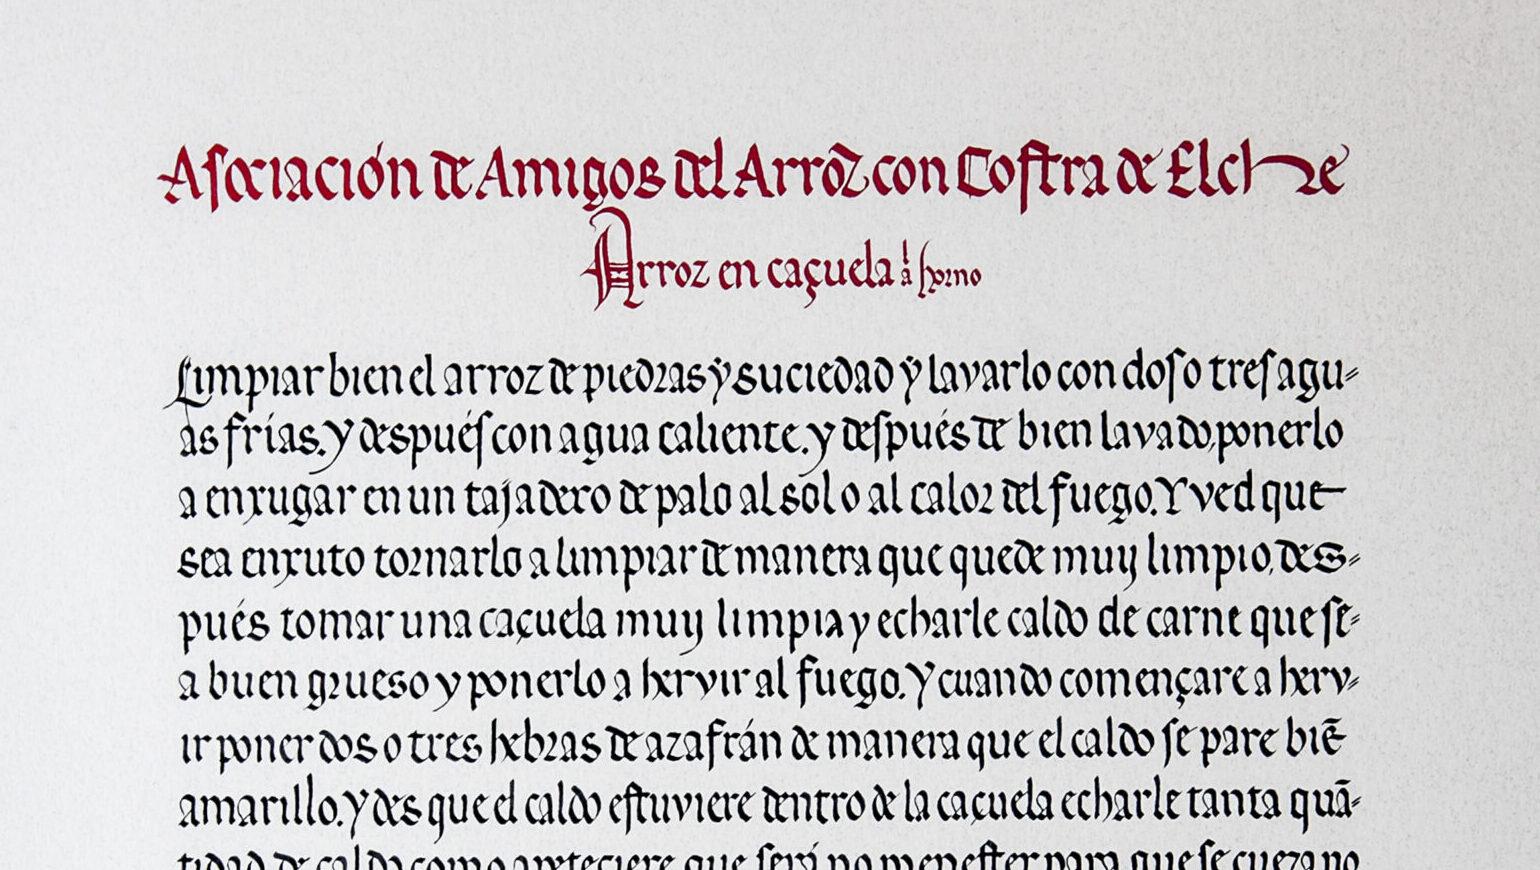 Asociación de Amigos del Arroz con Costra de Elche
Arroz en caçuela al horno
Limpiar bien el arroz de piedras y suciedad y lavarlo con dos o tres agu-
as frías. y después con agua caliente. y después de bien lavado, ponerlo
a enxugar en un tajadero de palo al sol o al calor del fuego. Y ved que
sea enxuto tornarlo a limpiar de manera que quede muy limpio, des-
pués tomar una caçuela muy limpia y echarle caldo de carne que se-
a buen grueso y ponerlo a hervir al fuego. Y cuando començare a herv-
ir poner dos o tres hebras de azafrán de manera que el caldo se pare biẽ
amarillo. Y des que el caldo estuviere dentro de la caçuela echarle tanta quã-
tidad de caldo como apeteciere que será no menester para que se cueza no